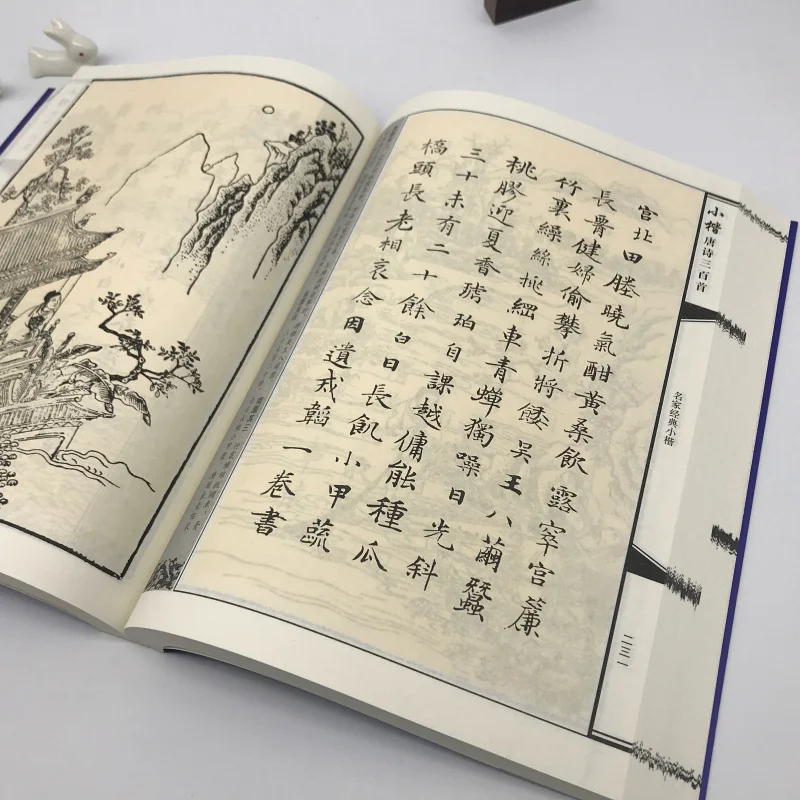 宮北田塍曉氣酣黃桑飲露窣宮簾
長健婦偷攀折將餧吳王八繭蠶
竹裏繰絲挑車青蟬獨噪日光斜
桃膠迎夏香琥珀自課越傭能種瓜
三十未有二十餘白日長飢小甲蔬
橋頭長老相哀念因遺戎韜一卷書
小楷唐诗三百首
名家经典小楷
二三一